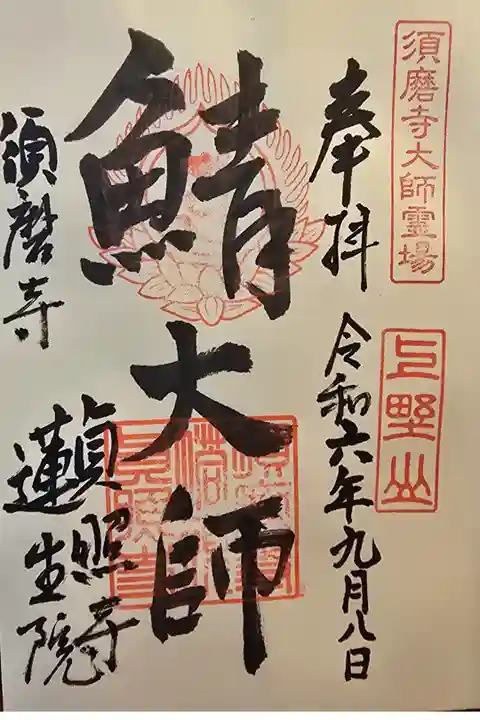 須磨寺大師霊場
上野山
奉拝
令和六年九月八日
鯖大師
須磨寺
蓮生院